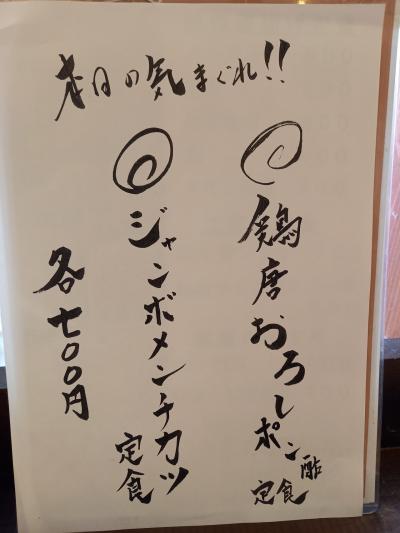 本日の気まぐれ!!
◎鶏唐おろしポン酢定食
◎ジャンボメンチカツ定食
各七〇〇円